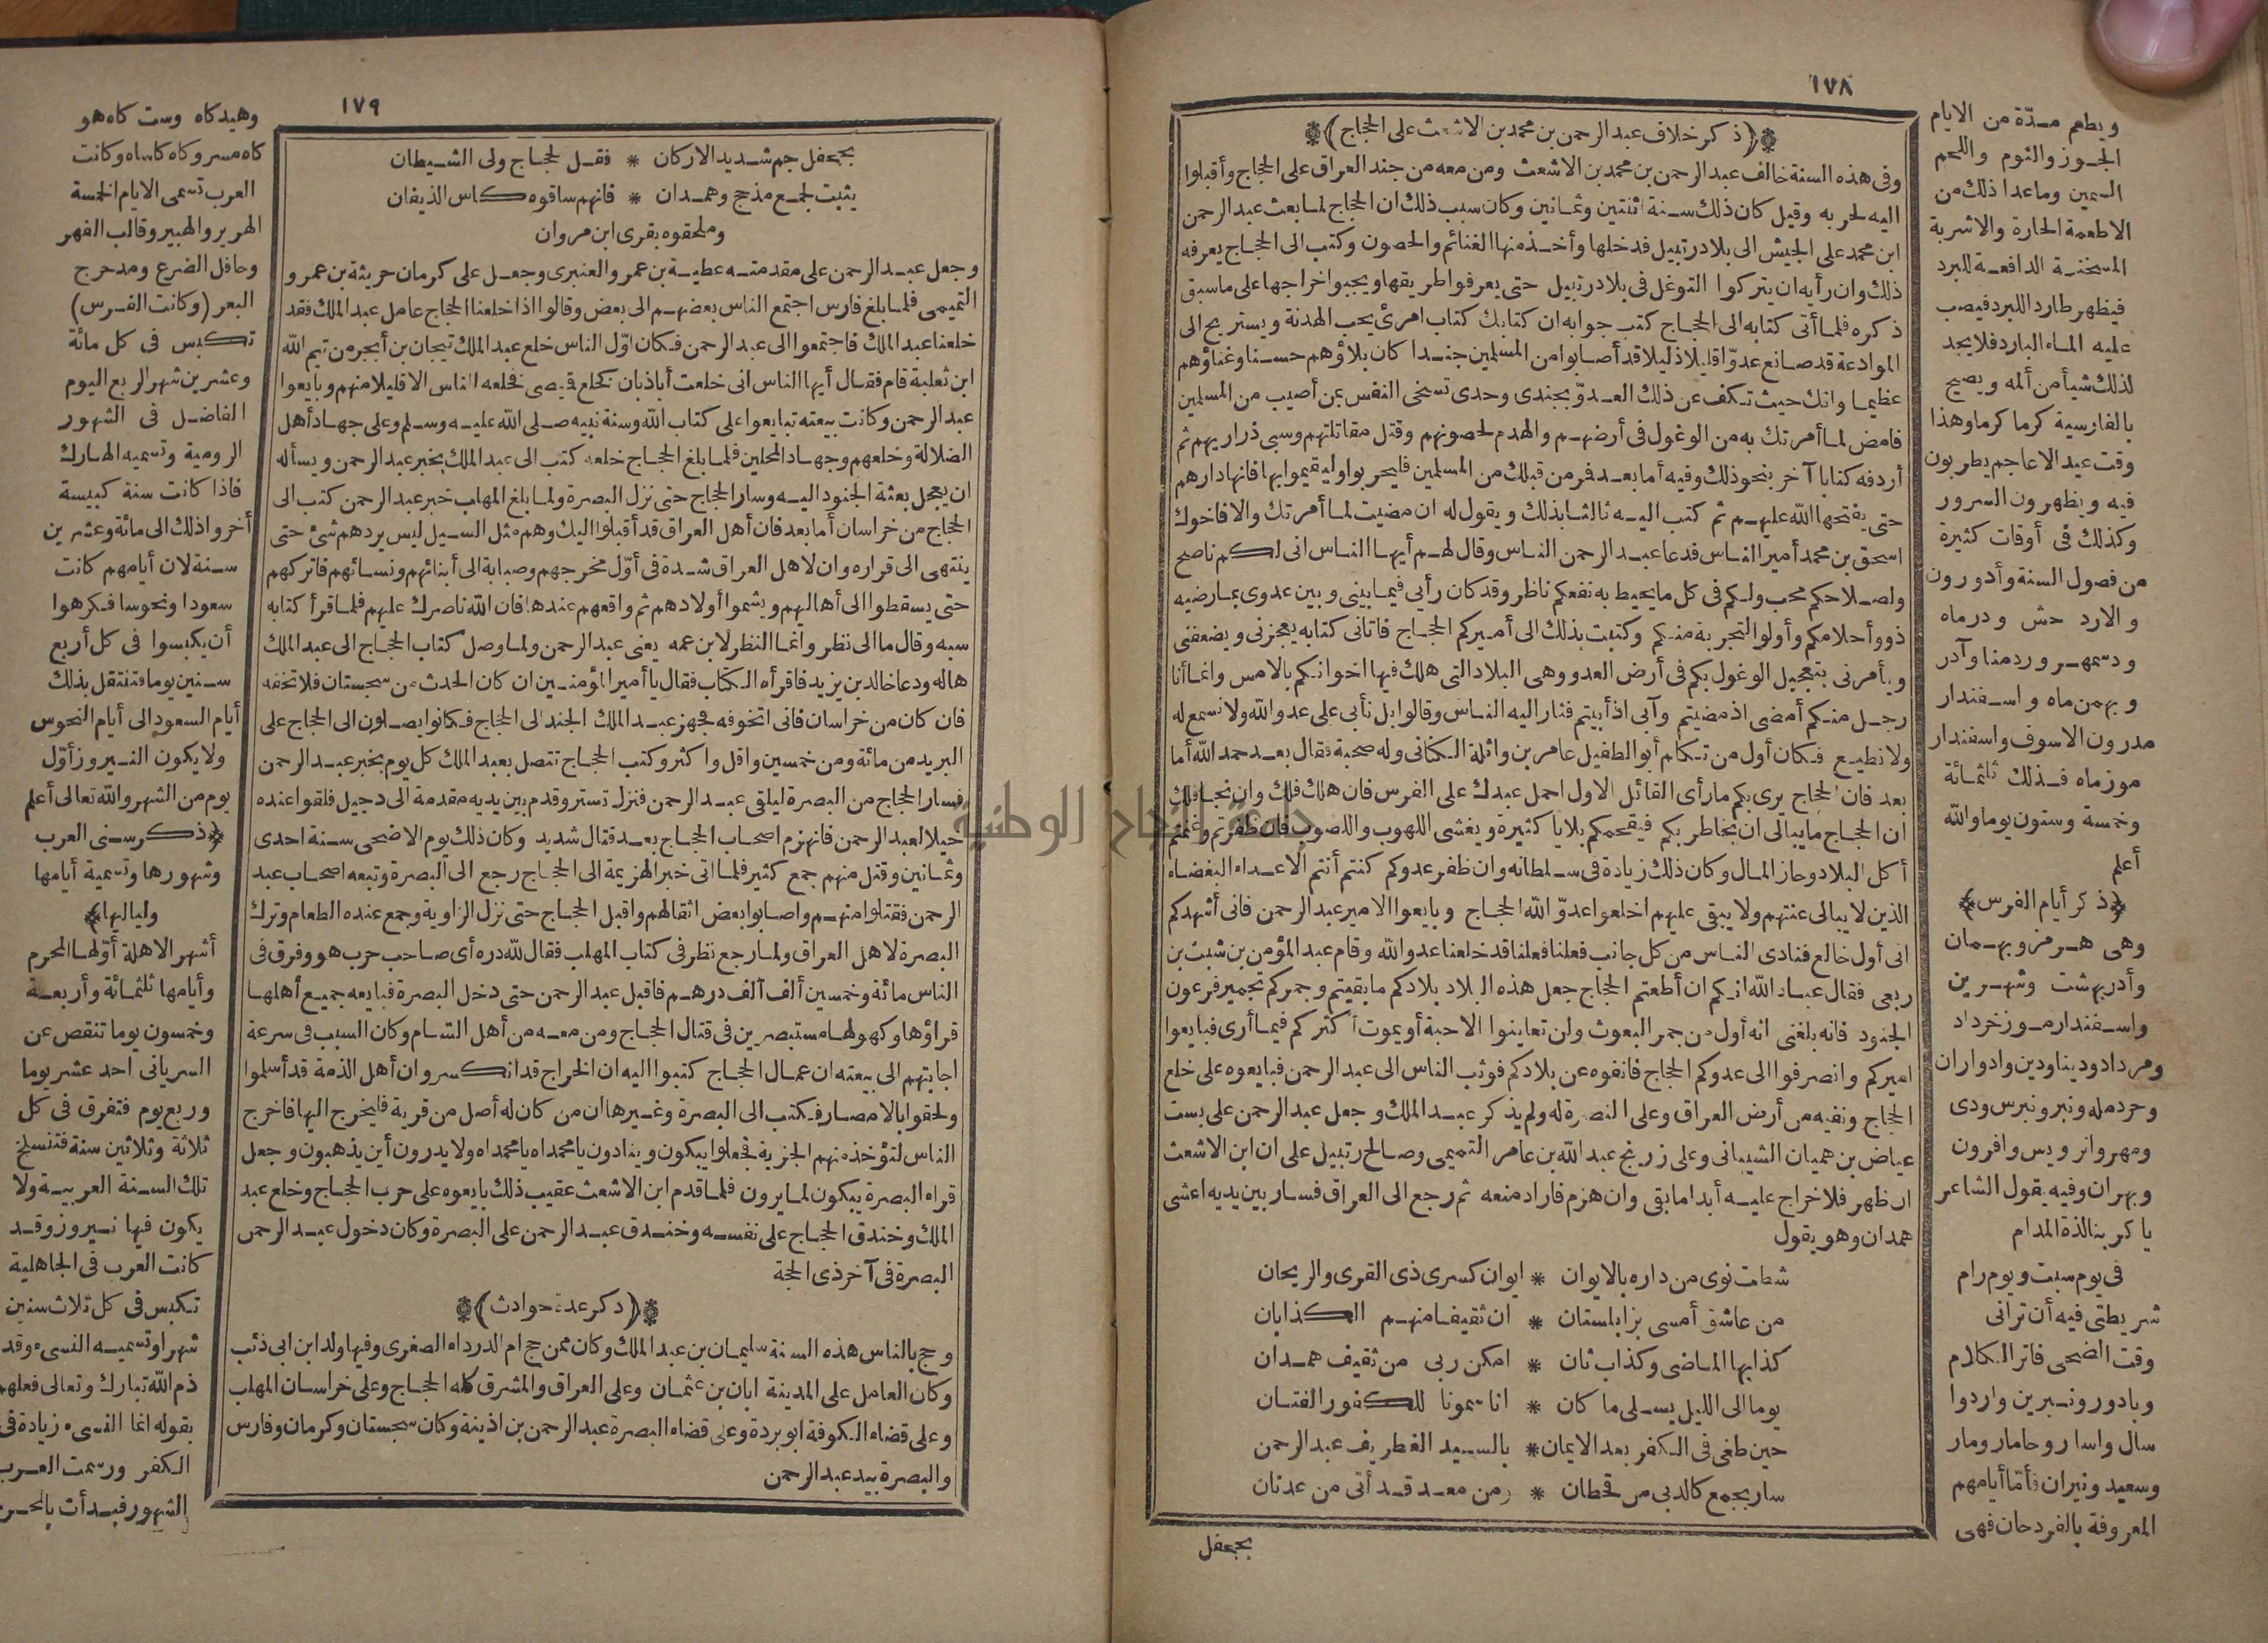 ١٧٨
﴿ذكر خلاف عبد الرحمن بن محمد بن الاشعث على الحجاج﴾
وفى هذه السنة خالف عبد الرحمن بن محمد بن الاشعث ومن معه من جند العراق على الحجاج وأقبلوا
اليه لحربه وقيل كان ذلك سنة اثنتين وثمانين وكان سبب ذلك ان الحجاج لما بعث عبد الرحمن
ابن محمد على الجيش الى بلاد رتبيل فدخلها وأخذ منها الغنائم والحصون وكتب الى الحجاج يعرفه
ذلك وان رأيه ان يتركوا التوغل فى بلاد رتبيل حتى يعرفوا طريقها ويجبوا خراجها على ما سبق
ذكره فلما أتى كتابه الى الحجاج كتب جوابه ان كتابك كتاب امرئ يحب الهدنة ويستريح الى
الموادعة قد صانع عدوّا قليلا ذليلا قد أصابوا من المسلمين جندا كان بلاؤهم حسنا وغناؤهم
عظيما وانك حيث تكف عن ذلك العدوّ بجندى وحدى تسخى النفس بمن أصيب من المسلمين
فامض لما أمرتك به من الوغول فى أرضهم والهدم لحصونهم وقتل مقاتلتهم وسبى ذراريهم ثم
أردفه كتابا آخر بنحو ذلك وفيه أما بعد فمر من قبلك من المسلمين فليحربوا وليقيموا بها فانها دارهم
حتى يفتحها الله عليهم ثم كتب اليه ثالثا بذلك ويقول له ان مضيت لما أمرتك والا فاخوك
اسحق بن محمد أمير الناس فدعا عبد الرحمن الناس وقال لهم أيها الناس انى لكم ناصح
ولصلاحكم محب ولكم فى كل ما يحيط به نفعكم ناظر وقد كان رأيى فيما بينى وبين عدوى بما رضيه
ذوو أحلامكم وأولو التجربة منكم وكتبت بذلك الى أميركم الحجاج فاتانى كتابه يعجزنى ويضعفنى
ويأمرنى بتعجيل الوغول بكم فى أرض العدو وهى البلاد التى هلك فيها اخوانكم بالامس وانما أنا
رجل منكم أمضى اذ مضيتم وآبى اذ أبيتم فثار اليه الناس وقالوا بل نأبى على عدو الله ولا نسمع له
ولا نطيع فكان أول من تكلم أبو الطفيل عامر بن واثلة الكنانى وله صحبة فقال بعد حمد الله أما
بعد فان الحجاج يرى بكم ما رأى القائل الاول احمل عبدك على الفرس فان هلك هلك وان نجا فلك
ان الحجاج ما يبالى ان يخاطر بكم فيقحمكم بلايا كثيرة ويغشى اللهوب واللصوب فان ظفرتم وغنمتم
أكل البلاد وحاز المال وكان ذلك زيادة فى سلطانه وان ظفر عدوكم كنتم أنتم الاعداء البغضاء
الذين لا يبالى عنتهم ولا يبقى عليهم اخلعوا عدوّ الله الحجاج وبايعوا الامير عبد الرحمن فانى أشهدكم
انى أول خالع فنادى الناس من كل جانب فعلنا فعلنا قد خلعنا عدو الله وقام عبد المؤمن بن شبث بن
ربعى فقال عباد الله انكم ان أطعتم الحجاج جعل هذه البلاد بلادكم ما بقيتم وجمركم تجمير فرعون
الجنود فانه بلغنى انه أول من جمر البعوث ولن تعاينوا الاحبة أو يموت أكثركم فيما أرى فبايعوا
اميركم وانصرفوا الى عدوكم الحجاج فانفوه عن بلادكم فوثب الناس الى عبد الرحمن فبايعوه على خلع
الحجاج ونفيه من أرض العراق وعلى النصرة له ولم يذكر عبد الملك وجعل عبد الرحمن على بست
عياض بن هميان الشيبانى وعلى زرنج عبد الله بن عامر التميمى وصالح رتبيل على ان ابن الاشعث
ان ظهر فلا خراج عليه أبدا ما بقى وان هزم فاراد منعه ثم رجع الى العراق فسار بين يديه اعشى
همدان وهو يقول
شطت نوى من داره بالايوان * ايوان كسرى ذى القرى والريحان
من عاشق أمسى بزابلستان * ان ثقيفا منهم الكذابان
كذابها الماضى وكذاب ثان * امكن ربى من ثقيف همدان
يوما الى الليل يسلى ما كان * انا سمونا للكفور الفتان
حين طغى فى الكفر بعد الايمان * بالسيد الغطريف عبد الرحمن
سار بجمع كالدبى من قحطان * ومن معد قد أتى من عدنان
بجحفل
ويطعم مدّة من الايام
الجوز والثوم واللحم
السمين وما عدا ذلك من
الاطعمة الحارة والاشربة
المسخنة الدافعة للبرد
فيظهر طارد البرد فيصب
عليه الماء البارد فلا يجد
لذلك شيأ من ألمه ويصيح
بالفارسية كرما كرما وهذا
وقت عيد الاعاجم يطربون
فيه ويظهرون السرور
وكذلك فى أوقات كثيرة
من فصول السنة وأدورون
والارد حش ودرماه
ودسمهر وردمنا وآدر
وبهمن ماه واسفندار
مدرون الاسوف واسفندار
موزماه فذلك ثلثمائة
وخمسة وستون يوما والله
أعلم
﴿ذكر أيام الفرس﴾
وهى هرمز وبهمان
وأدربهشت وشهرين
واسفندارموز خرداد
ومرداد وديناودين وادواران
وحردمله وتير ونبرس ودى
ومهروانرويس وافرون
وبهران وفيه يقول الشاعر
باكر بنا لذة المدام
فى يوم سبت ويوم رام
شريطتى فيه أن ترانى
وقت الضحى فاتر الكلام
وبادورونبرين واردوا
سال واسار وحامار ومار
وسعيد ونيران فأمّا أيامهم
المعروفة بالفردحان فهى
١٧٩
بجحفل جم شديد الاركان * فقل لحجاج ولى الشيطان
يثبت لجمع مذحج وهمدان * فانهم ساقوه كاس الذيفان
وملحقوه بقرى ابن مروان
وجعل عبد الرحمن على مقدمته عطية بن عمرو العنبرى وجعل على كرمان حريثة بن عمرو
التميمى فلما بلغ فارس اجتمع الناس بعضهم الى بعض وقالوا اذا خلعنا الحجاج عامل عبد الملك فقد
خلعنا عبد الملك فاجتمعوا الى عبد الرحمن فكان اوّل الناس خلع عبد الملك تيجان بن أبجر من تيم الله
ابن ثعلبة قام فقال أيها الناس انى خلعت أباذبان كخلع قميصى فخلعه الناس الا قليلا منهم وبايعوا
عبد الرحمن وكانت بيعته تبايعوا على كتاب الله وسنة نبيه صلى الله عليه وسلم وعلى جهاد أهل
الضلالة وخلعهم وجهاد المحلين فلما بلغ الحجاج خلعه كتب الى عبد الملك بخبر عبد الرحمن ويسأله
ان يعجل بعثة الجنود اليه وسار الحجاج حتى نزل البصرة ولما بلغ المهلب خبر عبد الرحمن كتب الى
الحجاج من خراسان أما بعد فان أهل العراق قد أقبلوا اليك وهم مثل السيل ليس يردهم شئ حتى
ينتهى الى قراره وان لاهل العراق شدة فى أوّل مخرجهم وصبابة الى أبنائهم ونسائهم فاتركهم
حتى يسقطوا الى أهاليهم ويشموا أولادهم ثم واقعهم عندها فان الله ناصرك عليهم فلما قرأ كتابه
سبه وقال ما الى نظر وانما النظر لابن عمه يعنى عبد الرحمن ولما وصل كتاب الحجاج الى عبد الملك
هاله ودعا خالد بن يزيد فاقرأه الكتاب فقال يا أمير المؤمنين ان كان الحدث من سجستان فلا تخفه
فان كان من خراسان فانى اتخوفه فجهز عبد الملك الجند الى الحجاج فكانوا يصلون الى الحجاج على
البريد من مائة ومن خمسين واقل واكثر وكتب الحجاج تتصل بعبد الملك كل يوم بخبر عبد الرحمن
فسار الحجاج من البصرة ليلقى عبد الرحمن فنزل تستر وقدم بين يديه مقدمة الى دجيل فلقوا عنده
خيلا لعبد الرحمن فانهزم اصحاب الحجاج بعد قتال شديد وكان ذلك يوم الاضحى سنة احدى
وثمانين وقتل منهم جمع كثير فلما اتى خبر الهزيمة الى الحجاج رجع الى البصرة وتبعه اصحاب عبد
الرحمن فقتلوا منهم واصابوا بعض اثقالهم واقبل الحجاج حتى نزل الزاوية وجمع عنده الطعام وترك
البصرة لاهل العراق ولما رجع نظر فى كتاب المهلب فقال لله دره أى صاحب حرب هو وفرق فى
الناس مائة وخمسين ألف ألف درهم فاقبل عبد الرحمن حتى دخل البصرة فبايعه جميع أهلها
قراؤها وكهولها مستبصرين فى قتال الحجاج ومن معه من أهل الشام وكان السبب فى سرعة
اجابتهم الى بيعته ان عمال الحجاج كتبوا اليه ان الخراج قد انكسر وان أهل الذمة قد أسلموا
ولحقوا بالامصار فكتب الى البصرة وغيرها ان من كان له أصل من قرية فليخرج اليها فاخرج
الناس لتؤخذ منهم الجزية فجعلوا يبكون وينادون يا محمداه يا محمداه ولا يدرون أين يذهبون وجعل
قراء البصرة يبكون لما يرون فلما قدم ابن الاشعث عقيب ذلك بايعوه على حرب الحجاج وخلع عبد
الملك وخندق الحجاج على نفسه وخندق عبد الرحمن على البصرة وكان دخول عبد الرحمن
البصرة فى آخر ذى الحجة
﴿ذكر عدة حوادث﴾
وحج بالناس هذه السنة سليمان بن عبد الملك وكان ممن حج ام الدرداء الصغرى وفيها ولد ابن ابى ذئب
وكان العامل على المدينة ابان بن عثمان وعلى العراق والمشرق كله الحجاج وعلى خراسان المهلب
وعلى قضاء الكوفة ابو بردة وعلى قضاء البصرة عبد الرحمن بن اذينة وكان سجستان وكرمان وفارس
والبصرة بيد عبد الرحمن
وهيدكاه وست كاه هو
كاه مسروكاه كاساه وكانت
العرب تسمى الايام الخمسة
الهرير والهبير وقالب الفهر
وحافل الضرع ومدحرج
البعر (وكانت الفرس)
تكبس فى كل مائة
وعشرين شهر الربع اليوم
الفاضل فى الشهور
الرومية وتسميه الهبارك
فاذا كانت سنة كبيسة
أخروا ذلك الى مائة وعشرين
سنة لان أيامهم كانت
سعودا ونحوسا فكرهوا
أن يكبسوا فى كل أربع
سنين يوما فتنتقل بذلك
أيام السعود الى أيام النحوس
ولا يكون النيروز أوّل
يوم من الشهر والله تعالى أعلم
﴿ذكر سنى العرب
وشهورها وتسمية أيامها
ولياليها﴾
أشهر الاهلة أوّلها المحرم
وأيامها ثلثمائة وأربعة
وخمسون يوما تنقص عن
السريانى احد عشر يوما
وربع يوم فتفرق فى كل
ثلاثة وثلاثين سنة فتنسلخ
تلك السنة العربية ولا
يكون فيها نيروز وقد
كانت العرب فى الجاهلية
تكبس فى كل ثلاث سنين
شهرا وتسميه النسىء وقد
ذم الله تبارك وتعالى فعلهم
بقوله انما النسىء زيادة فى
الكفر ورسمت العرب
الشهور فبدأت بالمحرم
جامعة النجاح الوطنية